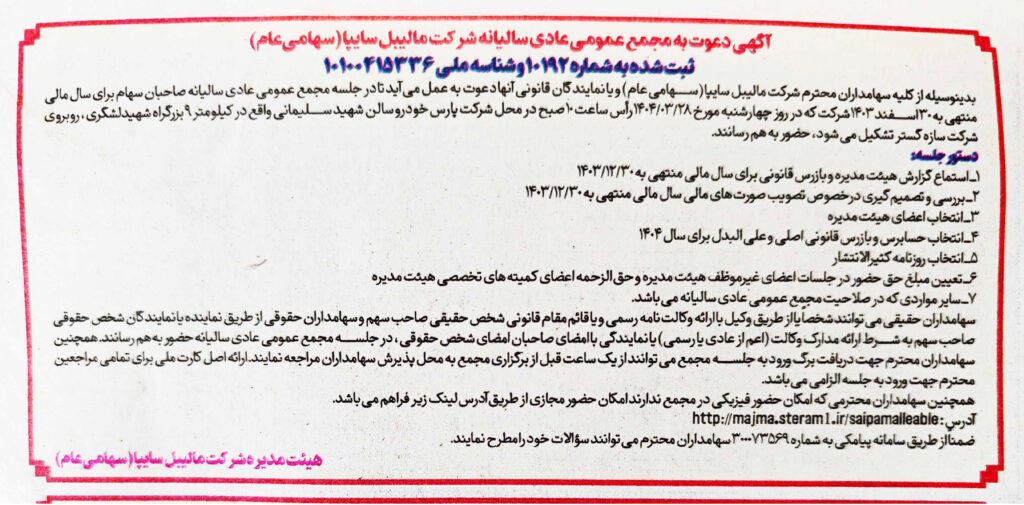 آگهی دعوت به مجمع عمومی عادی سالیانه شرکت مالیبل سایپا (سهامی عام)
ثبت شده به شماره ۱۰۱۹۲ و شناسه ملی ۱۰۱۰۰۴۱۵۳۳۶
بدینوسیله از کلیه سهامداران محترم شرکت مالیبل سایپا (سهامی عام) و یا نمایندگان قانونی آنها دعوت به عمل می آید تا در جلسه مجمع عمومی عادی سالیانه صاحبان سهام برای سال مالی
منتهی به ۳۰ اسفند ۱۴۰۳ شرکت که در روز چهارشنبه مورخ ۱۴۰۴/۰۳/۲۸ رأس ساعت ۱۰ صبح در محل شرکت پارس خودرو سالن شهید سلیمانی واقع در کیلومتر ۹ بزرگراه شهید لشگری ، روبروی
شرکت سازه گستر تشکیل می شود ، حضور به هم رسانند.
دستور جلسه:
۱ـ استماع گزارش هیئت مدیره و بازرس قانونی برای سال مالی منتهی به ۱۴۰۳/۱۲/۳۰
۲ـ بررسی و تصمیم گیری در خصوص تصویب صورت های مالی سال مالی منتهی به ۱۴۰۳/۱۲/۳۰
۳ـ انتخاب اعضای هیئت مدیره
۴ـ انتخاب حسابرس و بازرس قانونی اصلی و علی البدل برای سال ۱۴۰۴
۵ـ انتخاب روزنامه کثیرالانتشار
۶ـ تعیین مبلغ حق حضور در جلسات اعضای غیرموظف هیئت مدیره و حق الزحمه اعضای کمیته های تخصصی هیئت مدیره
۷ـ سایر مواردی که در صلاحیت مجمع عمومی عادی سالیانه می باشد.
سهامداران حقیقی می توانند شخصا یا از طریق وکیل با ارائه وکالت نامه رسمی و یا قائم مقام قانونی شخص حقیقی صاحب سهم و سهامداران حقوقی از طریق نماینده یا نمایندگان شخص حقوقی
صاحب سهم به شرط ارائه مدارک وکالت (اعم از عادی یا رسمی) یا نمایندگی با امضای صاحبان امضای شخص حقوقی ، در جلسه مجمع عمومی عادی سالیانه حضور به هم رسانند. همچنین
سهامداران محترم جهت دریافت برگ ورود به جلسه مجمع می توانند از یک ساعت قبل از برگزاری مجمع به محل پذیرش سهامداران مراجعه نمایند. ارائه اصل کارت ملی برای تمامی مراجعین
محترم جهت ورود به جلسه الزامی می باشد.
همچنین سهامداران محترمی که امکان حضور فیزیکی در مجمع ندارند امکان حضور مجازی از طریق آدرس لینک زیر فراهم می باشد.
آدرس: http://majma.steram1.ir/saipamalleable
ضمنا از طریق سامانه پیامکی به شماره ۳۰۰۰۷۳۵۶۹ سهامداران محترم می توانند سؤالات خود را مطرح نمایند.
هیئت مدیره شرکت مالیبل سایپا (سهامی عام)